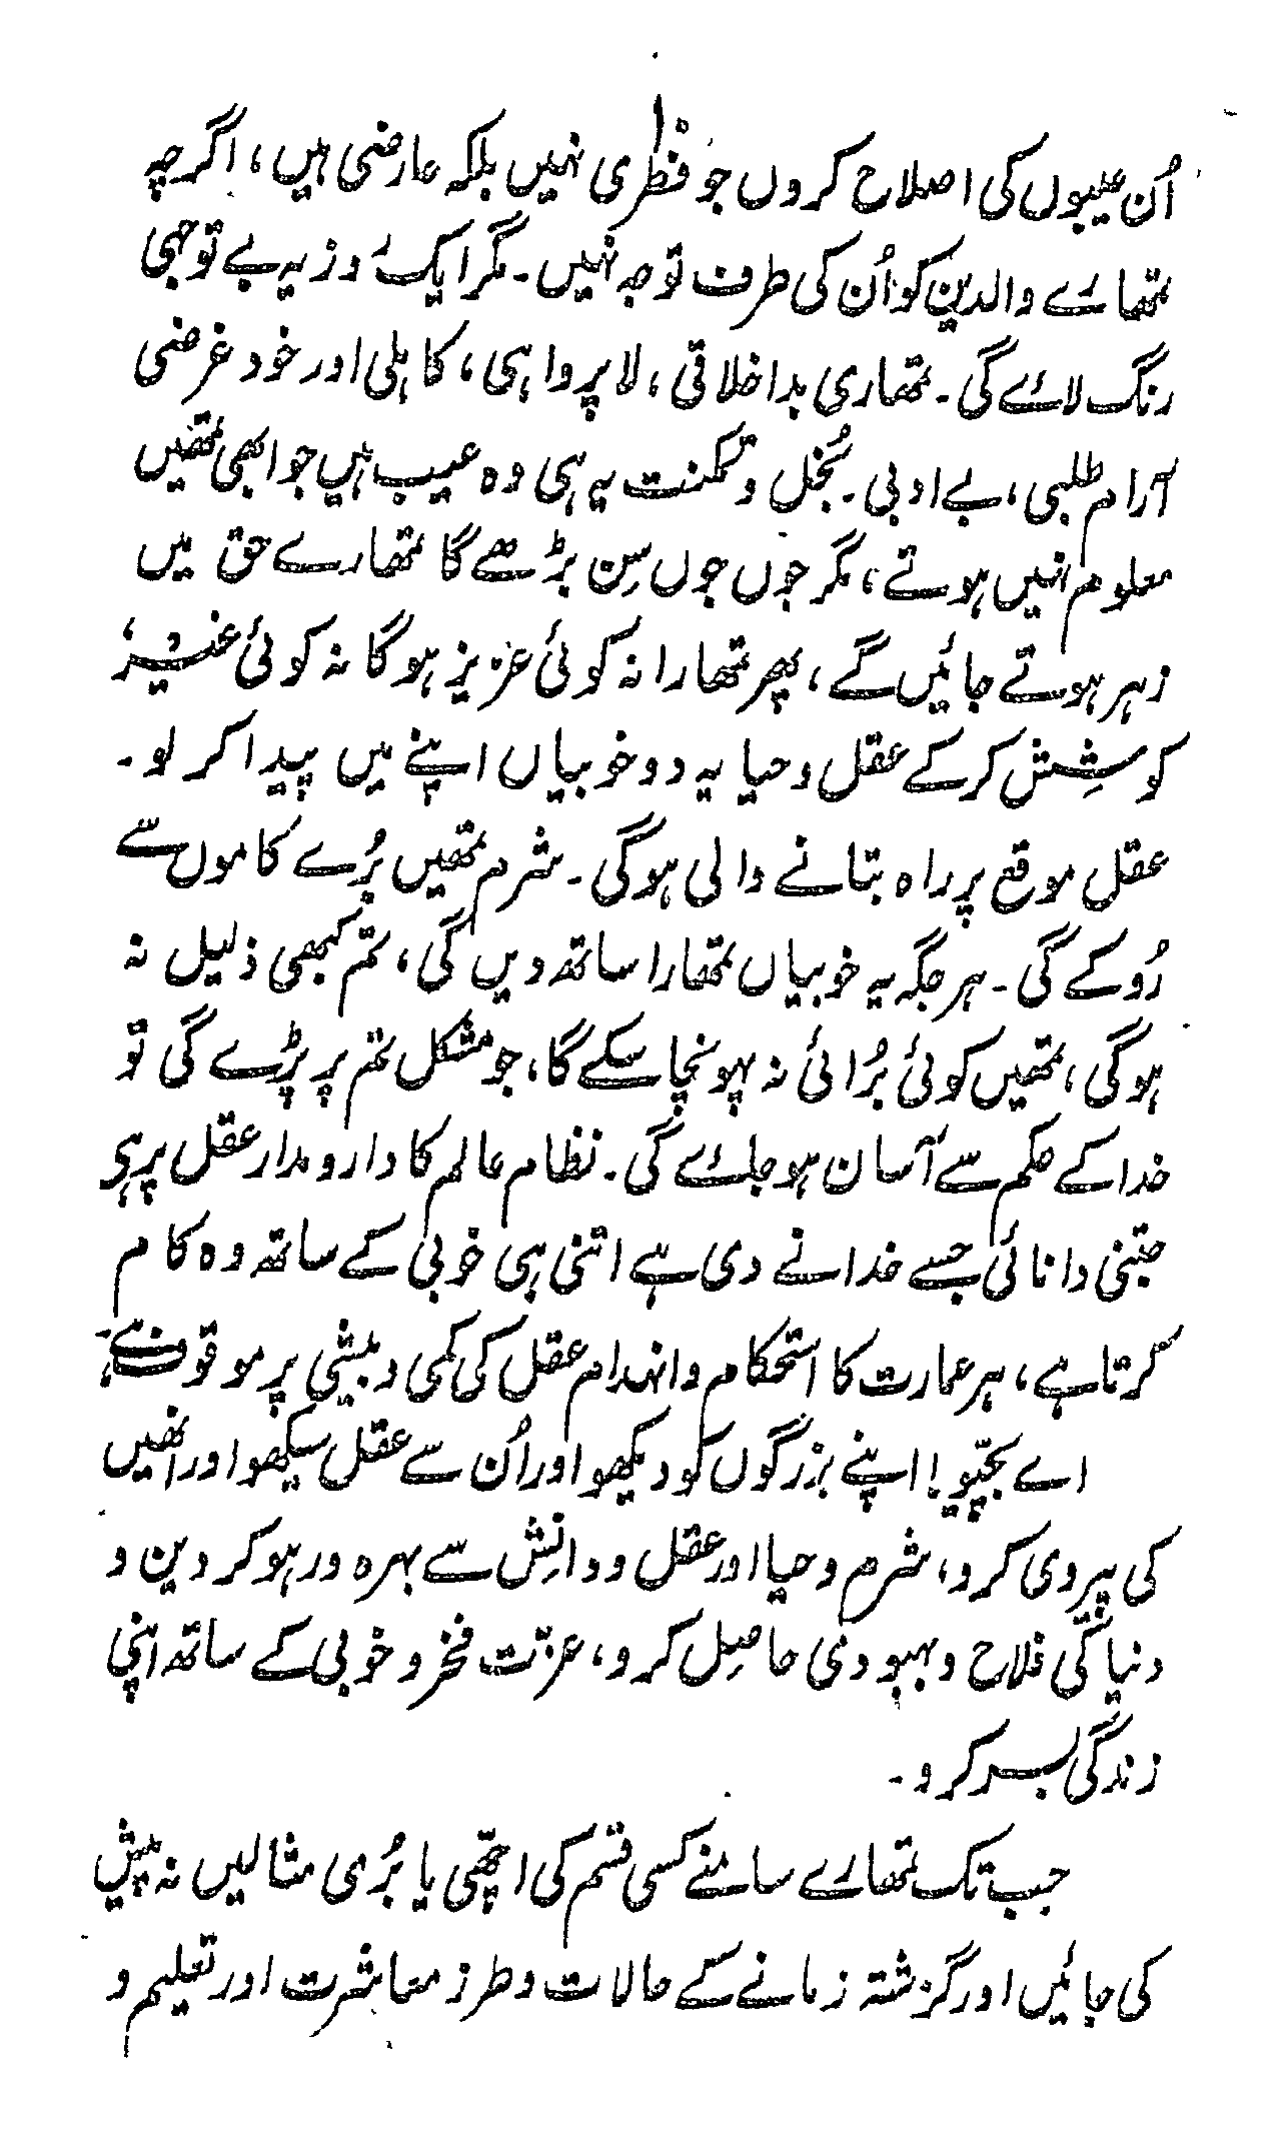 اُن عیبوں کی اصلاح کروں جو فطری نہیں بلکہ عارضی ہیں، اگرچہ
تمھارے والدین کو اُن کی طرف توجہ نہیں۔ مگر ایک روز یہ بے توجہی
رنگ لائے گی۔ تمھاری بداخلاقی، لاپرواہی، کاہلی اور خود غرضی
آرام طلبی، بے ادبی۔ بُخل و تمکنت یہ ہی وہ عیب ہیں جو ابھی تمھیں
معلوم نہیں ہوتے، مگر جوں جوں سِن بڑھے گا تمھارے حق میں
زہر ہوتے جائیں گے، پھر تمھارا نہ کوئی عزیز ہوگا نہ کوئی غیر،
کوشِش کرکے عقل و حیا یہ دو خوبیاں اپنے میں پیدا کر لو۔
عقل موقع پر راہ بتانے والی ہوگی۔ شرم تمھیں بُرے کاموں سے
رُوکے گی۔ ہر جگہ یہ خوبیاں تمھارا ساتھ دیں گی، تم کبھی ذلیل نہ
ہوگی، تمھیں کوئی بُرائی نہ پہونچا سکے گا، جو مشکل تم پر پڑے گی تو
خدا کے حکم سے آسان ہو جائے گی۔ نظام عالم کا دار و مدار عقل پر ہی
جتنی دانائی جسے خدا نے دی ہے اتنی ہی خوبی کے ساتھ وہ کام
کرتا ہے، ہر عمارت کا استحکام و انہدام عقل کی کمی و بیشی پر موقوف ہے،
اے بچّیو! اپنے بزرگوں کو دیکھو اور اُن سے عقل سیکھو اور انھیں
کی پیروی کرو، شرم و حیا اور عقل و دانِش سے بہرہ ور ہو کر دین و
دنیا کی فلاح و بہبودی حاصِل کرو، عزّت فخر و خوبی کے ساتھ اپنی
زندگی بسر کرو۔
جب تک تمھارے سامنے کسی قسم کی اچھّی یا بُری مثالیں نہ پیش
کی جائیں اور گزشتہ زمانے کے حالات و طرز معاشرت اور تعلیم و